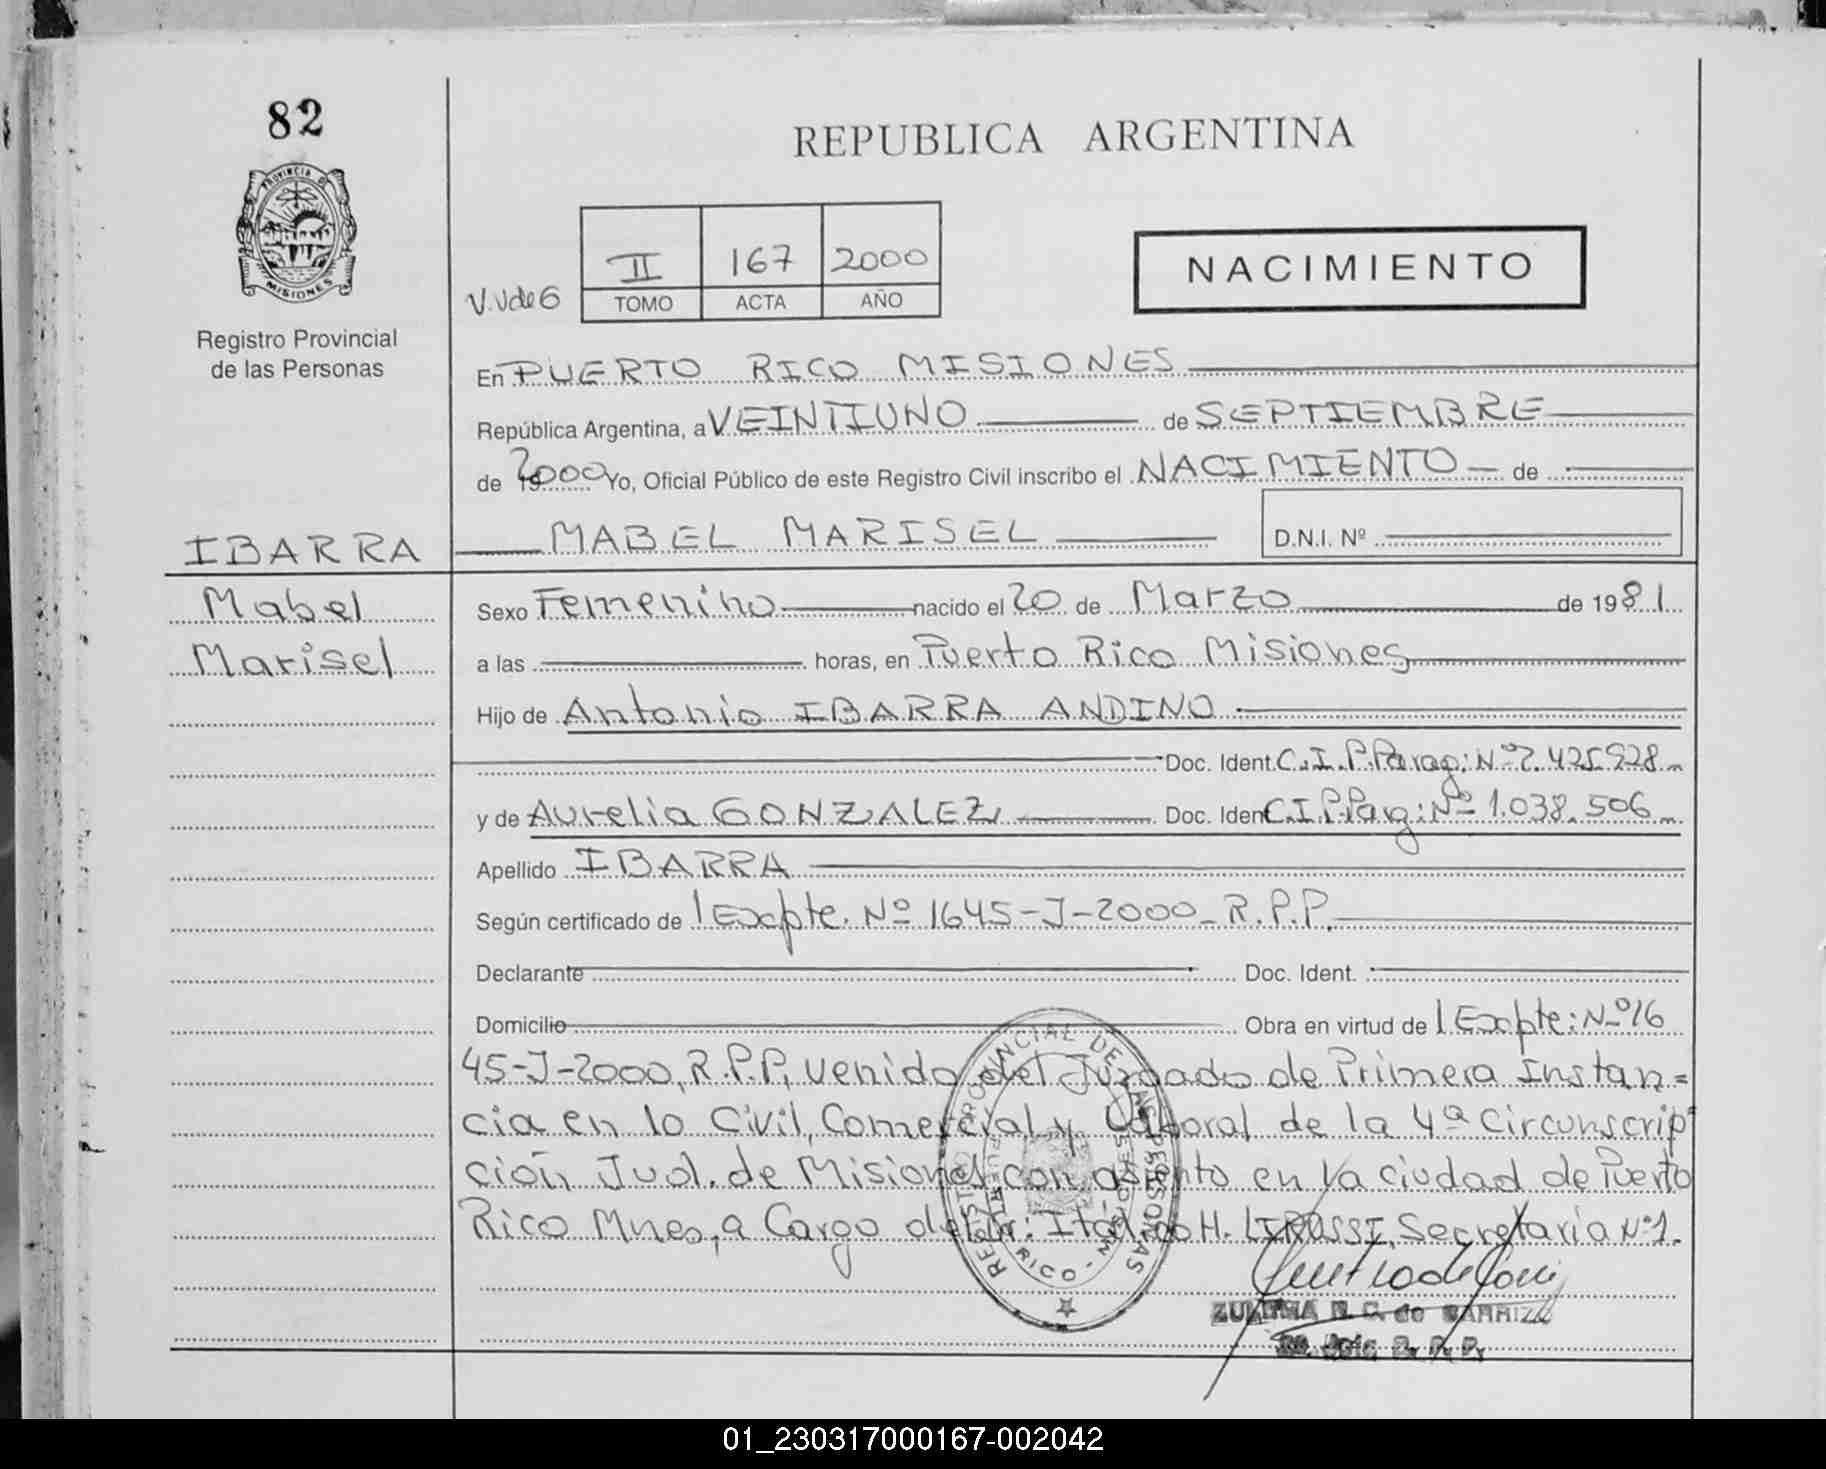 82
PROVINCIA DE
MISIONES
Registro Provincial
de las Personas
REPUBLICA ARGENTINA
II 167 2000
TOMO ACTA AÑO
NACIMIENTO
En PUERTO RICO MISIONES
República Argentina, a VEINTIUNO de SEPTIEMBRE
de 2000 Yo, Oficial Público de este Registro Civil inscribo el NACIMIENTO de
IBARRA MABEL MARISEL D.N.I. Nº
Mabel
Marisel
Sexo Femenino nacido el 20 de Marzo de 1981
a las horas, en Puerto Rico Misiones
Hijo de Antonio IBARRA ANDINO
Doc. Ident. C.I.P.Parag: Nº 2.425.928
y de Aurelia GONZALEZ Doc. Ident C.I.P.Parg: Nº 1.038.506
Apellido IBARRA
Según certificado de Expte. Nº 1645-J-2000-R.P.P.
Declarante Doc. Ident.
Domicilio Obra en virtud de Expte: Nº 16
45-J-2000, R.P.P, venido del Juzgado de Primera Instan=
cia en lo Civil, Comercial y Laboral de la 4ª Circunscrip
ción Jud. de Misiones con asiento en la ciudad de Puerto
Rico Mnes, a Cargo del Dr: Italico H. LIROSSI, Secretaria Nº1.
REGISTRO PROVINCIAL DE LAS PERSONAS
PUERTO RICO - MISIONES
de
R. P. P.
01_230317000167-002042